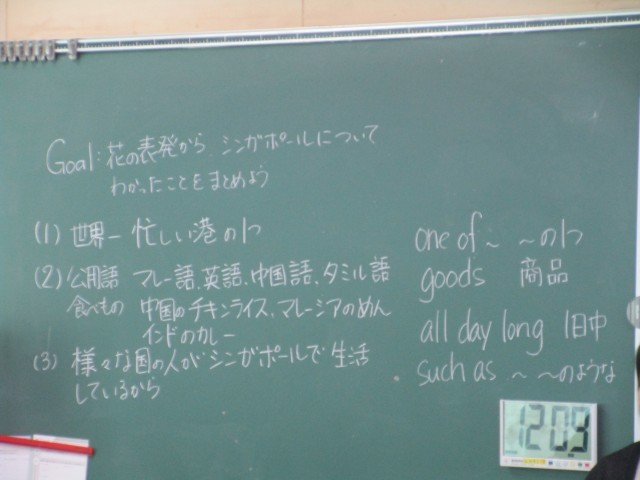 Goal: 花の表発から、シンガポールについて
わかったことをまとめよう
(1) 世界一 忙しい港の1つ
(2) 公用語 マレー語、英語、中国語、タミル語
食べもの 中国のチキンライス、マレーシアのめん
インドのカレー
(3) 様々な国の人がシンガポールで生活
しているから
one of ~ ~の1つ
goods 商品
all day long 1日中
such as ~ ~のような
12:09